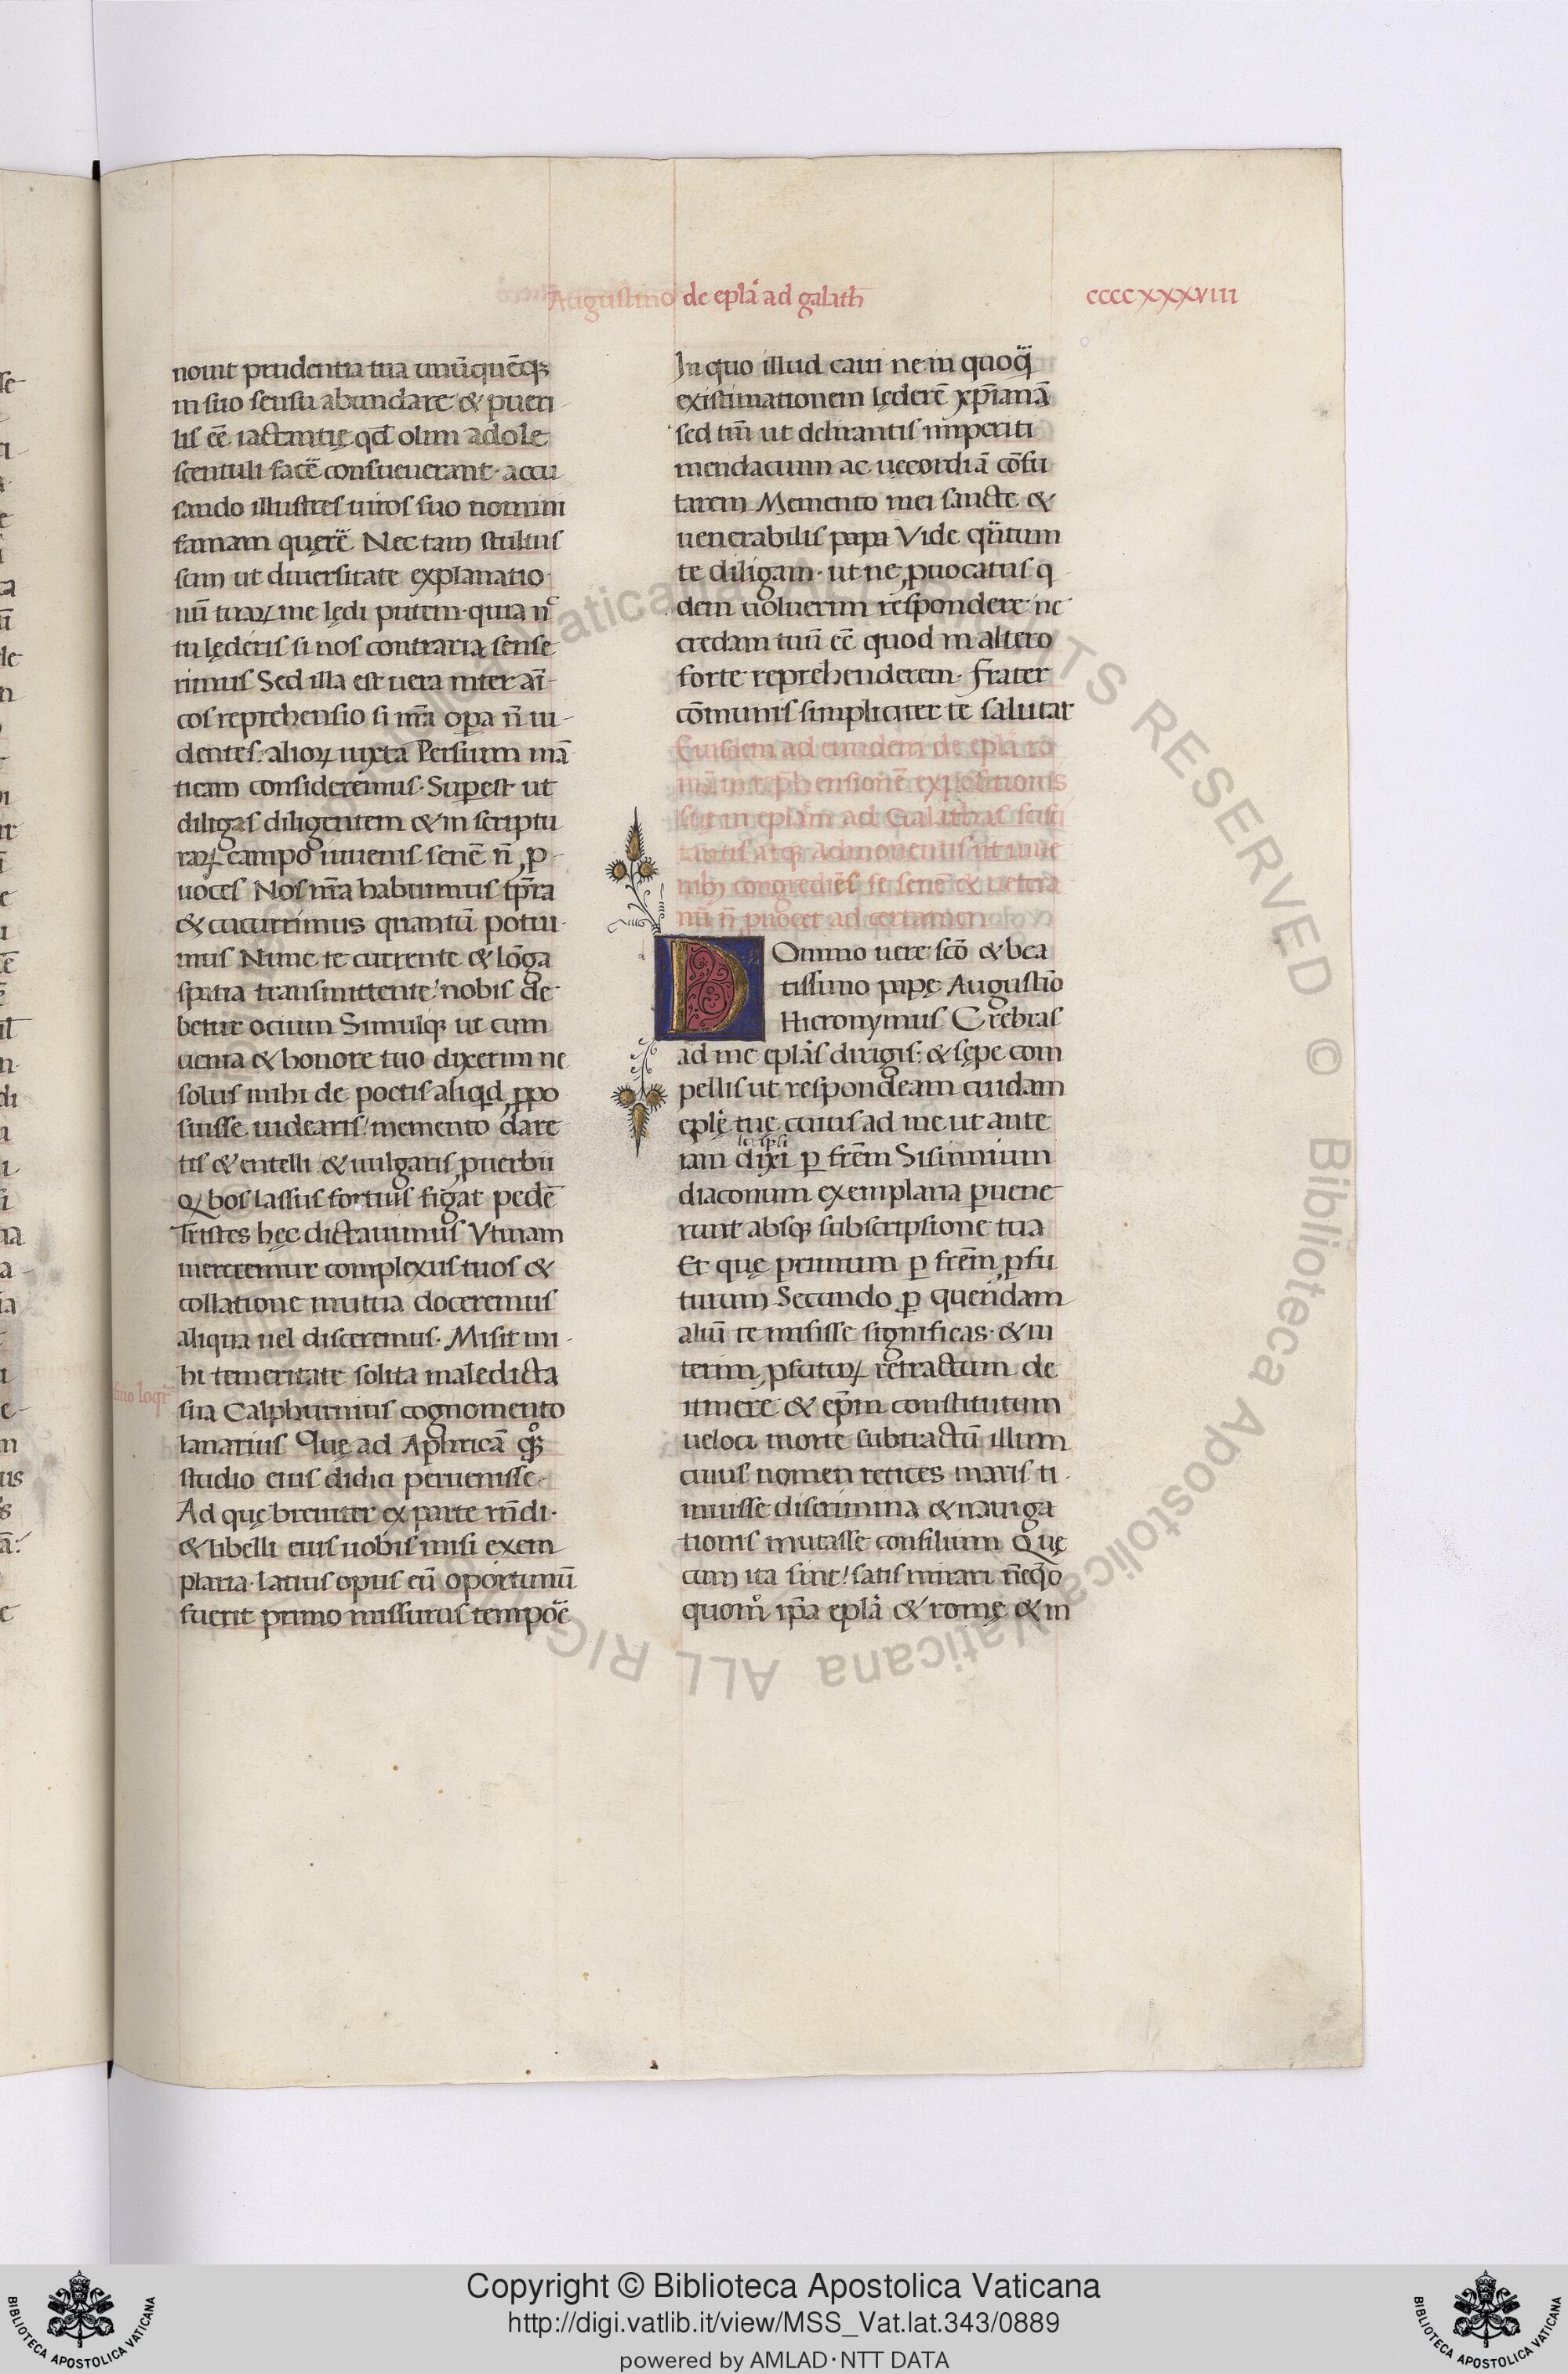 Augustino de eplā ad galath
ccccxxxviii
nouit prudentia tua unūquēqꝫ
in suo sensu abundare & pueri
lis eē iactantię qd̄ olim adole
scentuli facē consueuerant· accu
sando illustres uiros suo nomini
famam querē Nec tam stultus
sum ut diuersitate explanatio-
nū tuaꝝ me lędi putem· quia nc̄
tu lęderis si nos contraria sense
rimus Sed illa est uera inter ami-
cos reprehensio si nr̄a opa n̄ ui-
dentes: alioꝝ iuxta Persium mā
ticam consideremus· Supest ut
diligas diligentem & in scriptu
raꝝ campo iuuenis senē n̄ ꝓ-
uoces Nos nr̄a habuimus tp̄ra
& cucurrimus quantū potui-
mus Nunc te currente & lōga
spatia transmittente! nobis de
betur ocium Simulqꝫ ut cum
uenia & honore tuo dixerim ne
solus mihi de poetis aliqd ꝓpo
suisse uidearis! memento dare
tis & entelli & uulgaris ꝓuerbii
Q bos lassus fortius figat pedē
Tristes hęc dictauimus Vtinam
mereremur complexus tuos &
collatione mutua doceremus
aliqua uel disceremus· Misit mi-
hi temeritate solita maledicta
sua Calphurnius cognomento
lanarius Quę ad Aphricā qqꝫ
studio eius didici peruenisse·
Ad quę breuiter ex parte rn̄di·
& libelli eius uobis misi exem
plaria· latius opus cū oportunū
fuerit primo missurus tempoē
In quo illud caui ne in quoq̄
existimationem lęderē xp̄ianā
sed tm̄ ut delirantis imperiti
mendacium ac uecordiā cōfu
tarem Memento mei sancte &
uenerabilis papa Vide qn̄tum
te diligam· ut ne ꝓuocatus q
dem uoluerim respondere ne
credam tuū eē quod in altero
forte reprehenderem· Frater
cōmunis simpliciter te salutat
Eiusdem ad eundem de eplā ro
nū n̄ ꝓuocet ad certamen
Domino uere scō & bea
tissimo papę Augustīo
Hieronymus Crebras
ad me eplās dirigis: & sępe com
pellis ut respondeam cuidam
eplę tuę cuius ad me ut ante
scripsi
iam dixi ꝑ frēm Sisinnium
diaconum exemplaria ꝑuene
runt absqꝫ subscriptione tua
Et quę primum ꝑ frēm ꝓfu
turum Secundo ꝑ quendam
aliū te misisse significas· & in
terim ꝓfutuꝝ retractum de
itinere & ep̄m constitutum
ueloci morte subtractū illum
cuius nomen retices maris ti-
muisse discrimina & nauiga
tionis mutasse consilium Quę
cum ita sint! satis mirari neqo
quom̊ ip̄a eplā & romę & in
suo loqr̄
Copyright © Biblioteca Apostolica Vaticana
http://digi.vatlib.it/view/MSS_Vat.lat.343/0889
powered by AMLAD·NTT DATA